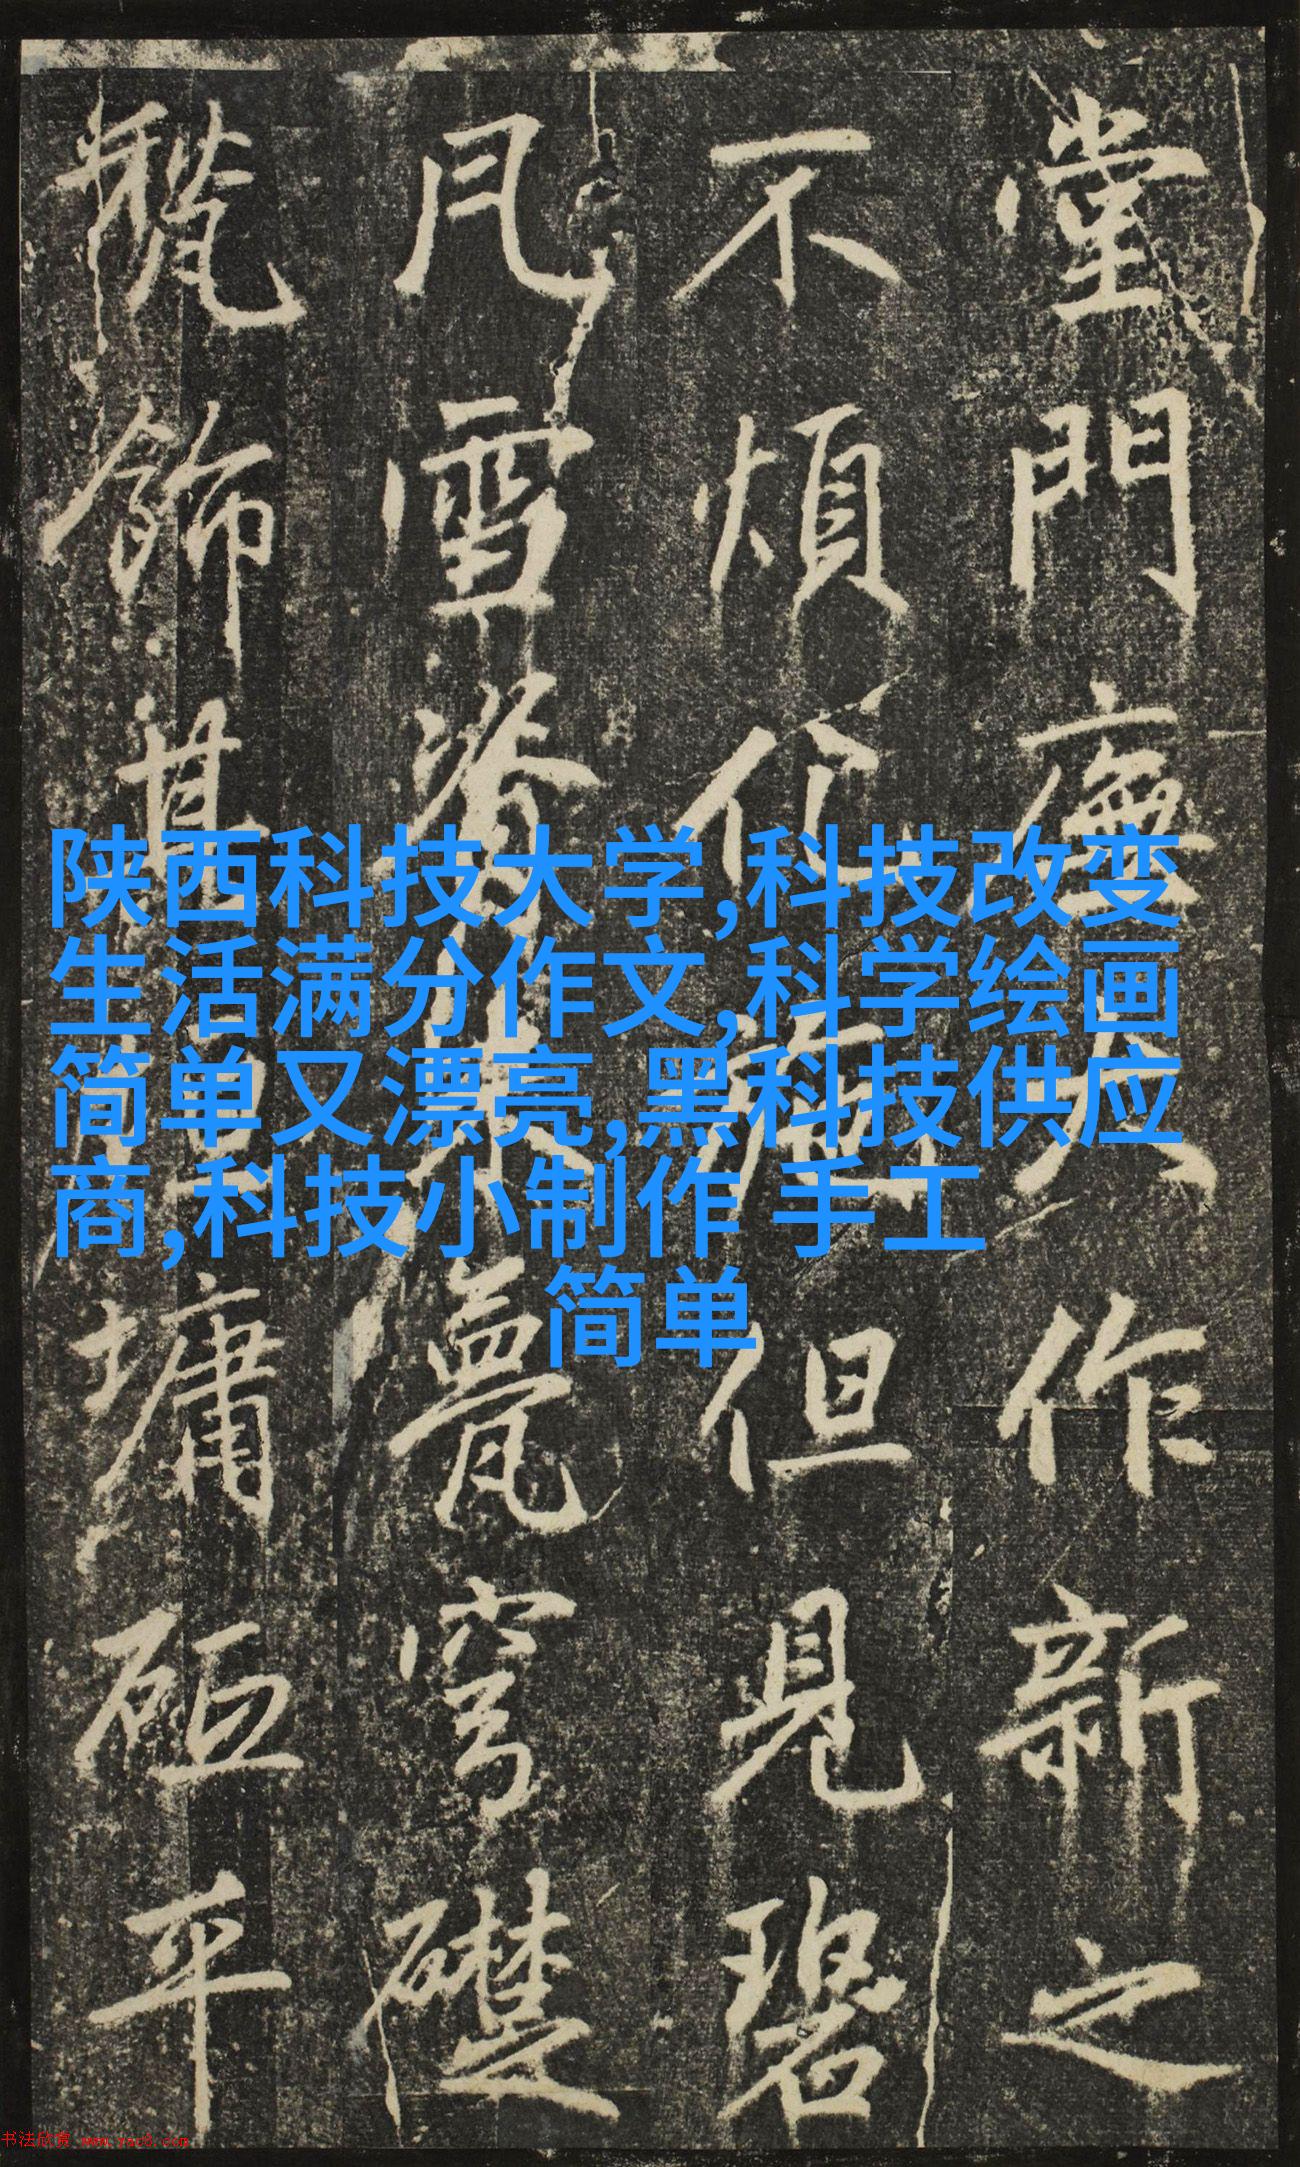 堂門廡大作新之
不煩化 但見碧
风雪 甍穹礎
甃飾其 墉砠平
陕西科技大学,科技改变
生活满分作文,科学绘画
简单又漂亮,黑科技供应
商,科技小制作 手工
简单
书法欣赏 www.yac8.com